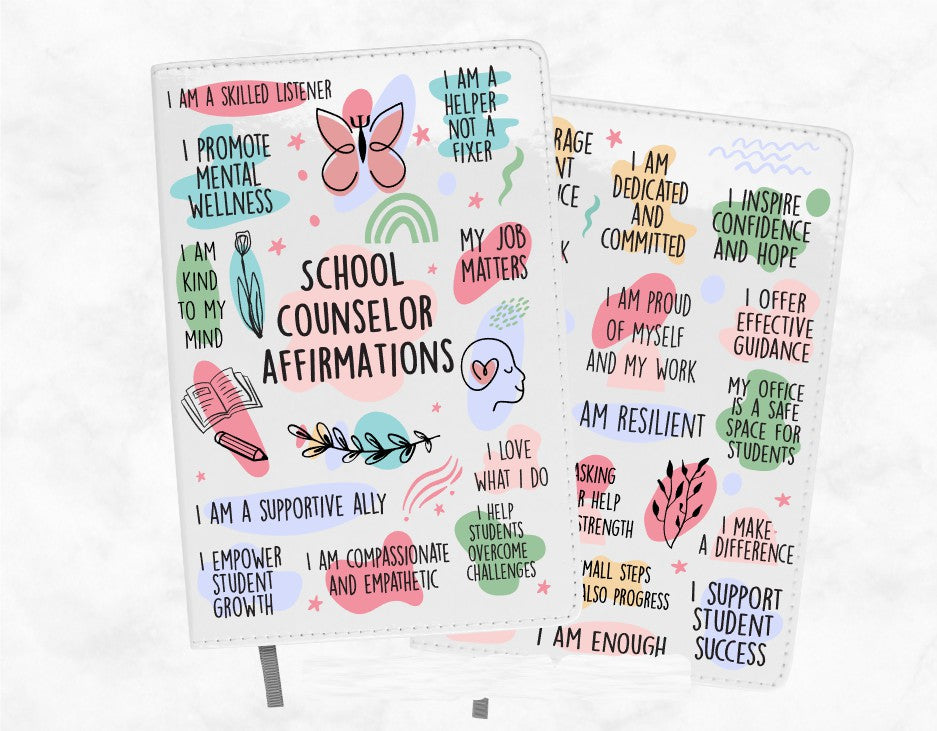 I AM A SKILLED LISTENER
I AM A
HELPER
NOT A
FIXER
I PROMOTE
MENTAL
WELLNESS
I AM
KIND
TO MY
MIND
SCHOOL
COUNSELOR
AFFIRMATIONS
MY JOB
MATTERS
I LOVE
WHAT I DO
I AM A SUPPORTIVE ALLY
I HELP
STUDENTS
OVERCOME
CHALLENGES
I EMPOWER
STUDENT
GROWTH
I AM COMPASSIONATE
AND EMPATHETIC
I AM
DEDICATED
AND
COMMITTED
I INSPIRE
CONFIDENCE
AND HOPE
I AM PROUD
OF MYSELF
AND MY WORK
I OFFER
EFFECTIVE
GUIDANCE
AM RESILIENT
MY OFFICE
IS A SAFE
SPACE FOR
STUDENTS
ASKING
HELP
STRENGTH
I MAKE
A DIFFERENCE
SMALL STEPS
ALSO PROGRESS
I AM ENOUGH
I SUPPORT
STUDENT
SUCCESS